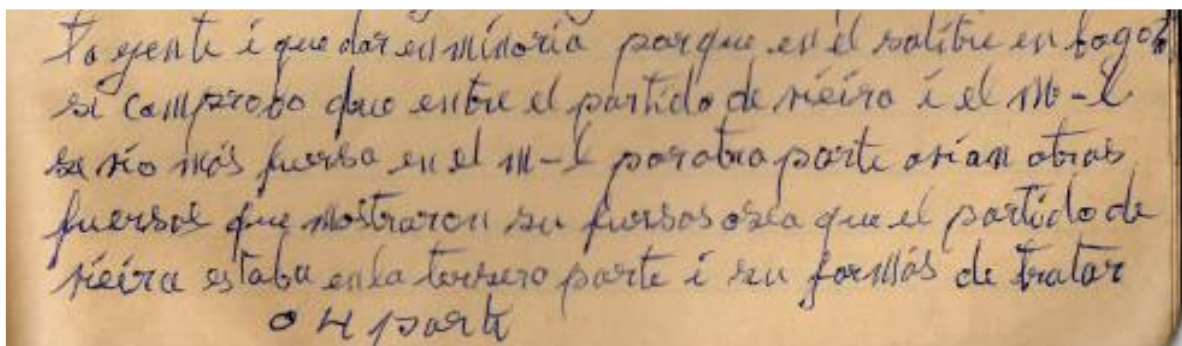 ta gente i quedar en minoria porque en el salitre en bogota
si comprobo que entre el partido de vieira i el m-l
se vio más fuersa en el m-l por otra parte avian otras
fuersas que mostraron su fuersas osea que el partido de
vieira estaba en la tersera parte i su formás de tratar
o 4 parte